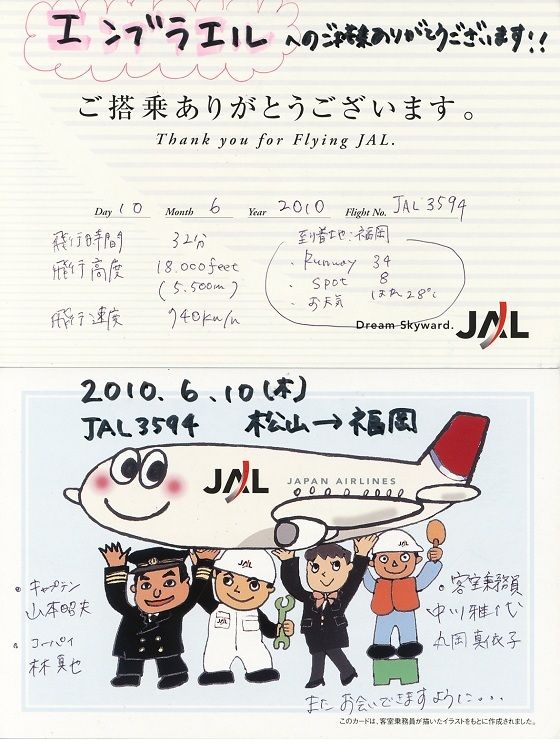 エンブラエル へのご搭乗ありがとうございます!!
ご搭乗ありがとうございます。
Thank you for Flying JAL.
Day 10 Month 6 Year 2010 Flight No. JAL 3594
飛行時間 32分
飛行高度 18.000feet
(5.500m)
飛行速度 740km/h
到着地:福岡
・Runway 34
・spot 8
・お天気 はれ 28℃
Dream Skyward. JAL
2010.6.10(木)
JAL3594 松山→福岡
JAL JAPAN AIRLINES
JAL
キャプテン
山本昭夫
コーパイ
林真也
客室乗務員
中川雅代
丸岡真依子
また お会いできますように・・・
このカードは、客室乗務員が描いたイラストをもとに作成されました。